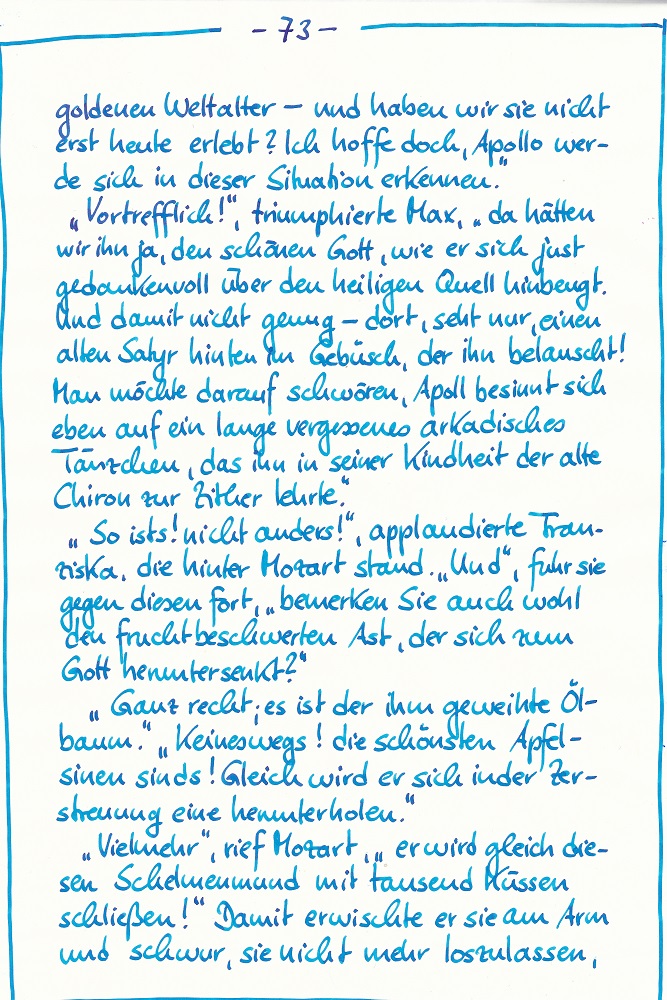 - 73 -
goldenen Weltalter – und haben wir sie nicht
erst heute erlebt? Ich hoffe doch, Apollo wer-
de sich in dieser Situation erkennen."
„Vortrefflich!", triumphierte Max, „da hätten
wir ihn ja, den schönen Gott, wie er sich just
gedankenvoll über den heiligen Quell hinbeugt.
Und damit nicht genug – dort, seht nur, einen
alten Satyr hinten im Gebüsch, der ihn belauscht!
Man möchte darauf schwören, Apoll besinnt sich
eben auf ein lange vergessenes arkadisches
Tänzchen, das ihn in seiner Kindheit der alte
Chiron zur Zither lehrte."
„So ists! nicht anders!", applaudierte Fran-
ziska, die hinter Mozart stand. „Und", fuhr sie
gegen diesen fort, „bemerken Sie auch wohl
den fruchtbeschwerten Ast, der sich zum
Gott heruntersenkt?"
„Ganz recht; es ist der ihm geweihte Öl-
baum." „Keineswegs! die schönsten Apfel-
sinen sinds! Gleich wird er sich in der Zer-
streuung eine herunterholen."
„Vielmehr", rief Mozart, „er wird gleich die-
sen Schelmenmund mit tausend Küssen
schließen!" Damit erwischte er sie am Arm
und schwur, sie nicht mehr loszulassen,